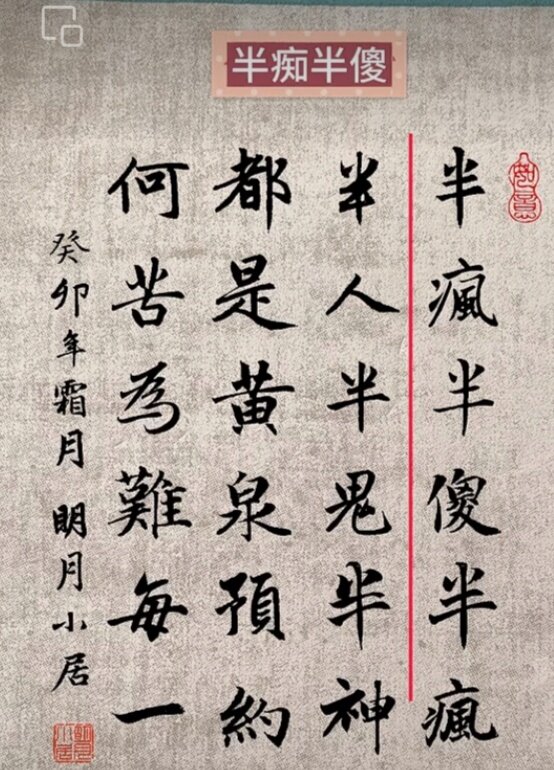 半痴半傻
如意
半瘋半傻半瘋
半人半鬼半神
都是黃泉預約
何苦為難每一
癸卯年霜月 明月小居